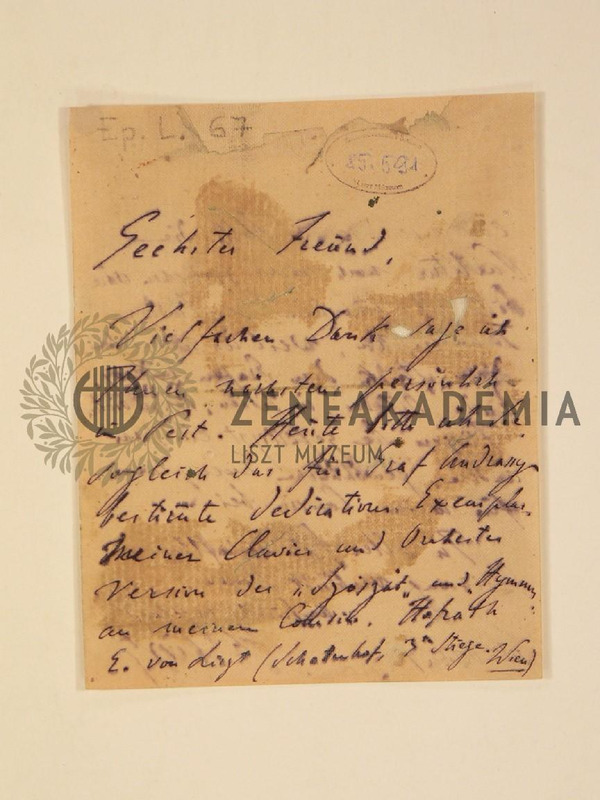 Ep. L. 67
Geehrter Freund,
Vielfachen Dank sage ich
Ihnen nächstens persönlich
in Pest. Heute bitte ich Sie
sogleich das für Graf Andrassy
bestimte Dedications Exemplar
meiner Clavier und Orchester
Version des „Szózat" und „Hymnus"
an meinen Cousin, Hofrath
E. von Liszt (Schottenhof, 3te Stiege. Wien)
ZENEAKADEMIA
LISZT MÚZEUM